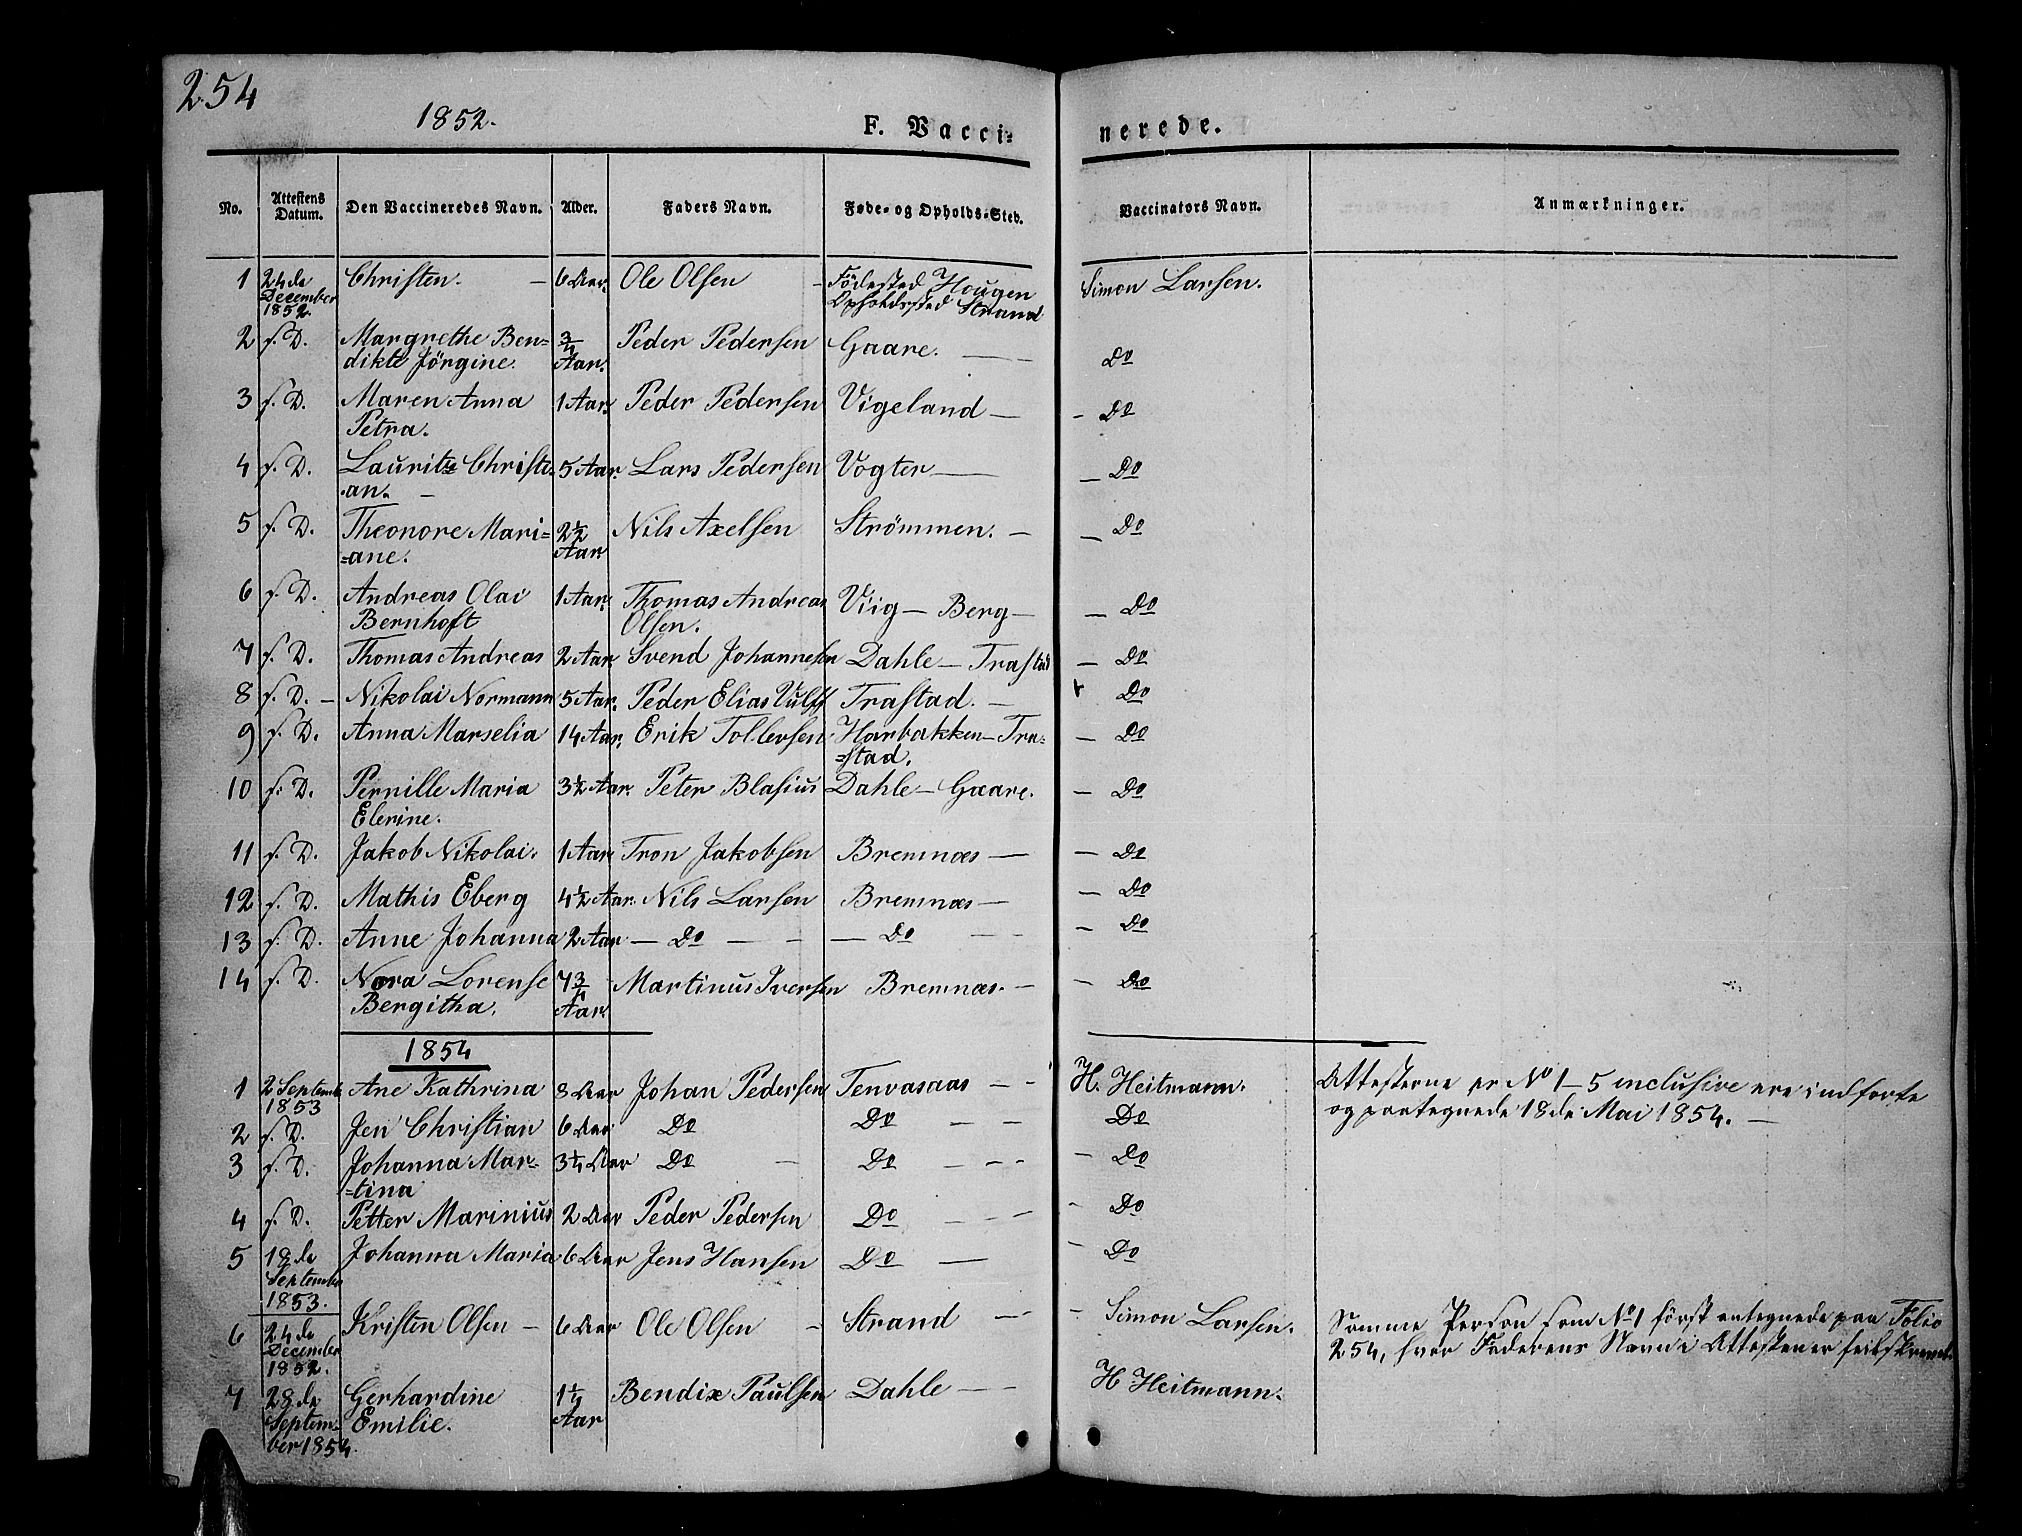 254
1852.
F. Vacci-
nerede.
No. Attestens Datum. Den Vaccineredes Navn. Alder. Faders Navn. Føde- og Opholds-Sted. Vaccinators Navn. Anmærkninger.
1 24de December 1852. Christen. — 6 Aar. Ole Olsen — Födested Hougen Opholdssted Strand Simon Larsen.
2 s. D. Margrethe Ben=dikte Jörgine. 3/4 Aar. Peder Pedersen Gaare. — Do
3 s. D. Maren Anna Petra. 1 Aar. Peder Pedersen Vigeland — — Do
4 s. D. Lauritz Christi-an. — 5 Aar. Lars Pedersen Vogter — — Do
5 s. D. Theonore Mari=ane. 2 1/2 Aar Nils Axelsen Strömmen. — — Do
6 s. D. Andreas Olai Bernhoft 1 Aar. Thomas Andreas Olsen. Viig — Berg — — Do
7 s. D. Thomas Andreas 2 Aar Svend Johannesen Dahle — Trastad — Do
8 s. D. — Nikolai Normann 5 Aar. Peder Elias Vulff Trastad. — Do
9 s. D. Anna Marselia 14 Aar. Erik Tollevsen Harbakken — Tra=stad. — Do
10 s. D. Pernille Maria Elerine. 3 1/2 Aar. Peter Blasius Dahle — Gaare. — Do
11 s. D. Jakob Nikolai. 1 Aar Tron Jakobsen Bremnæs — — Do
12 s. D. Mathis Eberg 4 1/2 Aar. Nils Larsen Bremnæs — — Do
13 s. D. Anne Johanna 2 Aar — Do — — — Do — — — Do
14 s. D. Nora Lorense Bergitha. 7 3/4 Aar. Martinus Iversen Bremnæs. — — Do
1854
1 2 Septemb 1853 Ane Kathrina 8 Aar Johan Pedersen Tenvasaas — — H. Heitmann. Attesterne er No 1—5 inclusive ere indförte
og paategnede 18de Mai 1854. —
2 s. D. Jen Christian 6 Aar Do Do — — Do
3 s. D. Johanna Mar=tina 3 1/4 Aar Do — Do — — — — Do
4 s. D. Petter Marinius 2 Aar Peder Pedersen Do — — — — Do
5 18de September 1853. Johanna Maria 6 Aar Jens Hansen Do — — Do
6 24de December 1852. Kristen Olsen — 6 Aar Ole Olsen — Strand — — Simon Larsen. Samme Person som No 1 först antegnede paa Folio
254, hvor Faderens Navn i Attesten er feilskrevet.
7 28de Septem-ber 1854. Gerhardine Emilie. 1 1/4 Aar Bendix Paulsen Dahle — — H Heitmann.